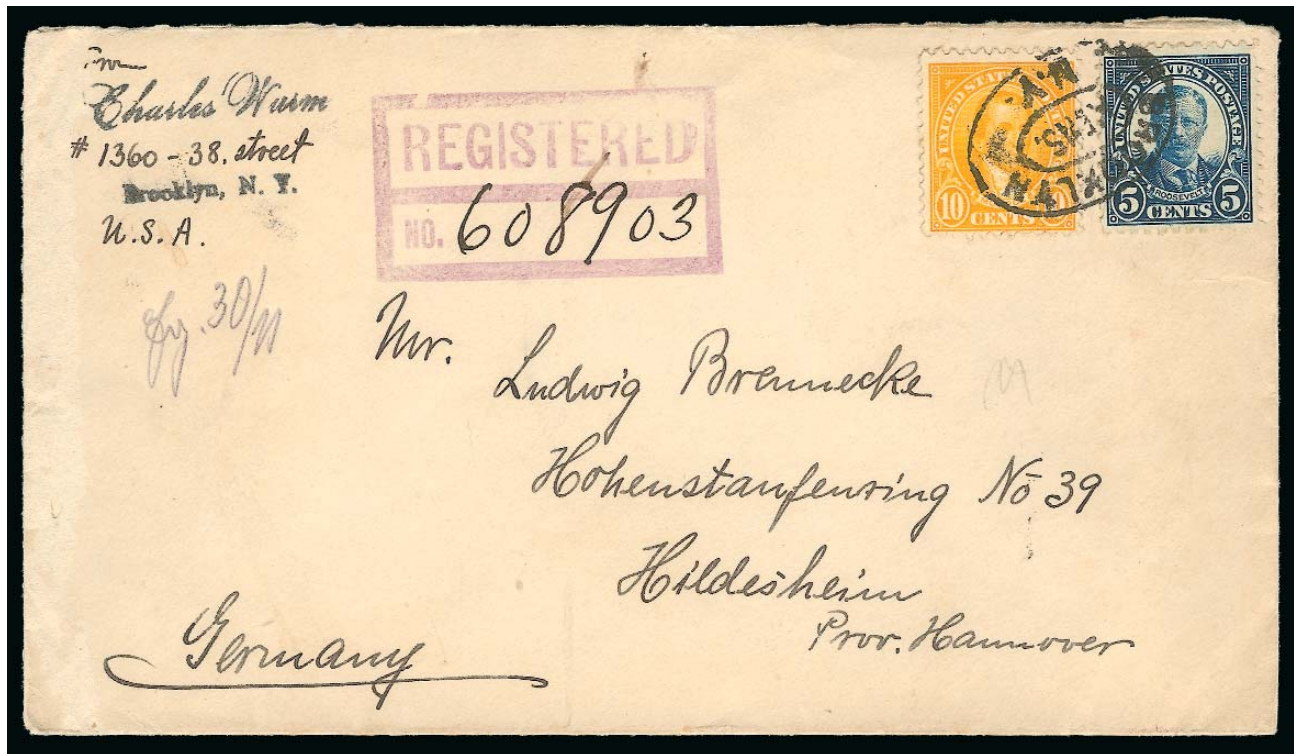 From
Charles Wurm
# 1360 - 38. street
Brooklyn, N. Y.
U. S. A.
REGISTERED
NO. 608903
BROOKLYN N.Y.
UNITED STATES POSTAGE
10 CENTS 10
UNITED STATES POSTAGE
ROOSEVELT
5 CENTS 5
30/11
Mr.
Ludwig Brennecke
Hohenstaufenring No 39
Hildesheim
Prov. Hannover
Germany